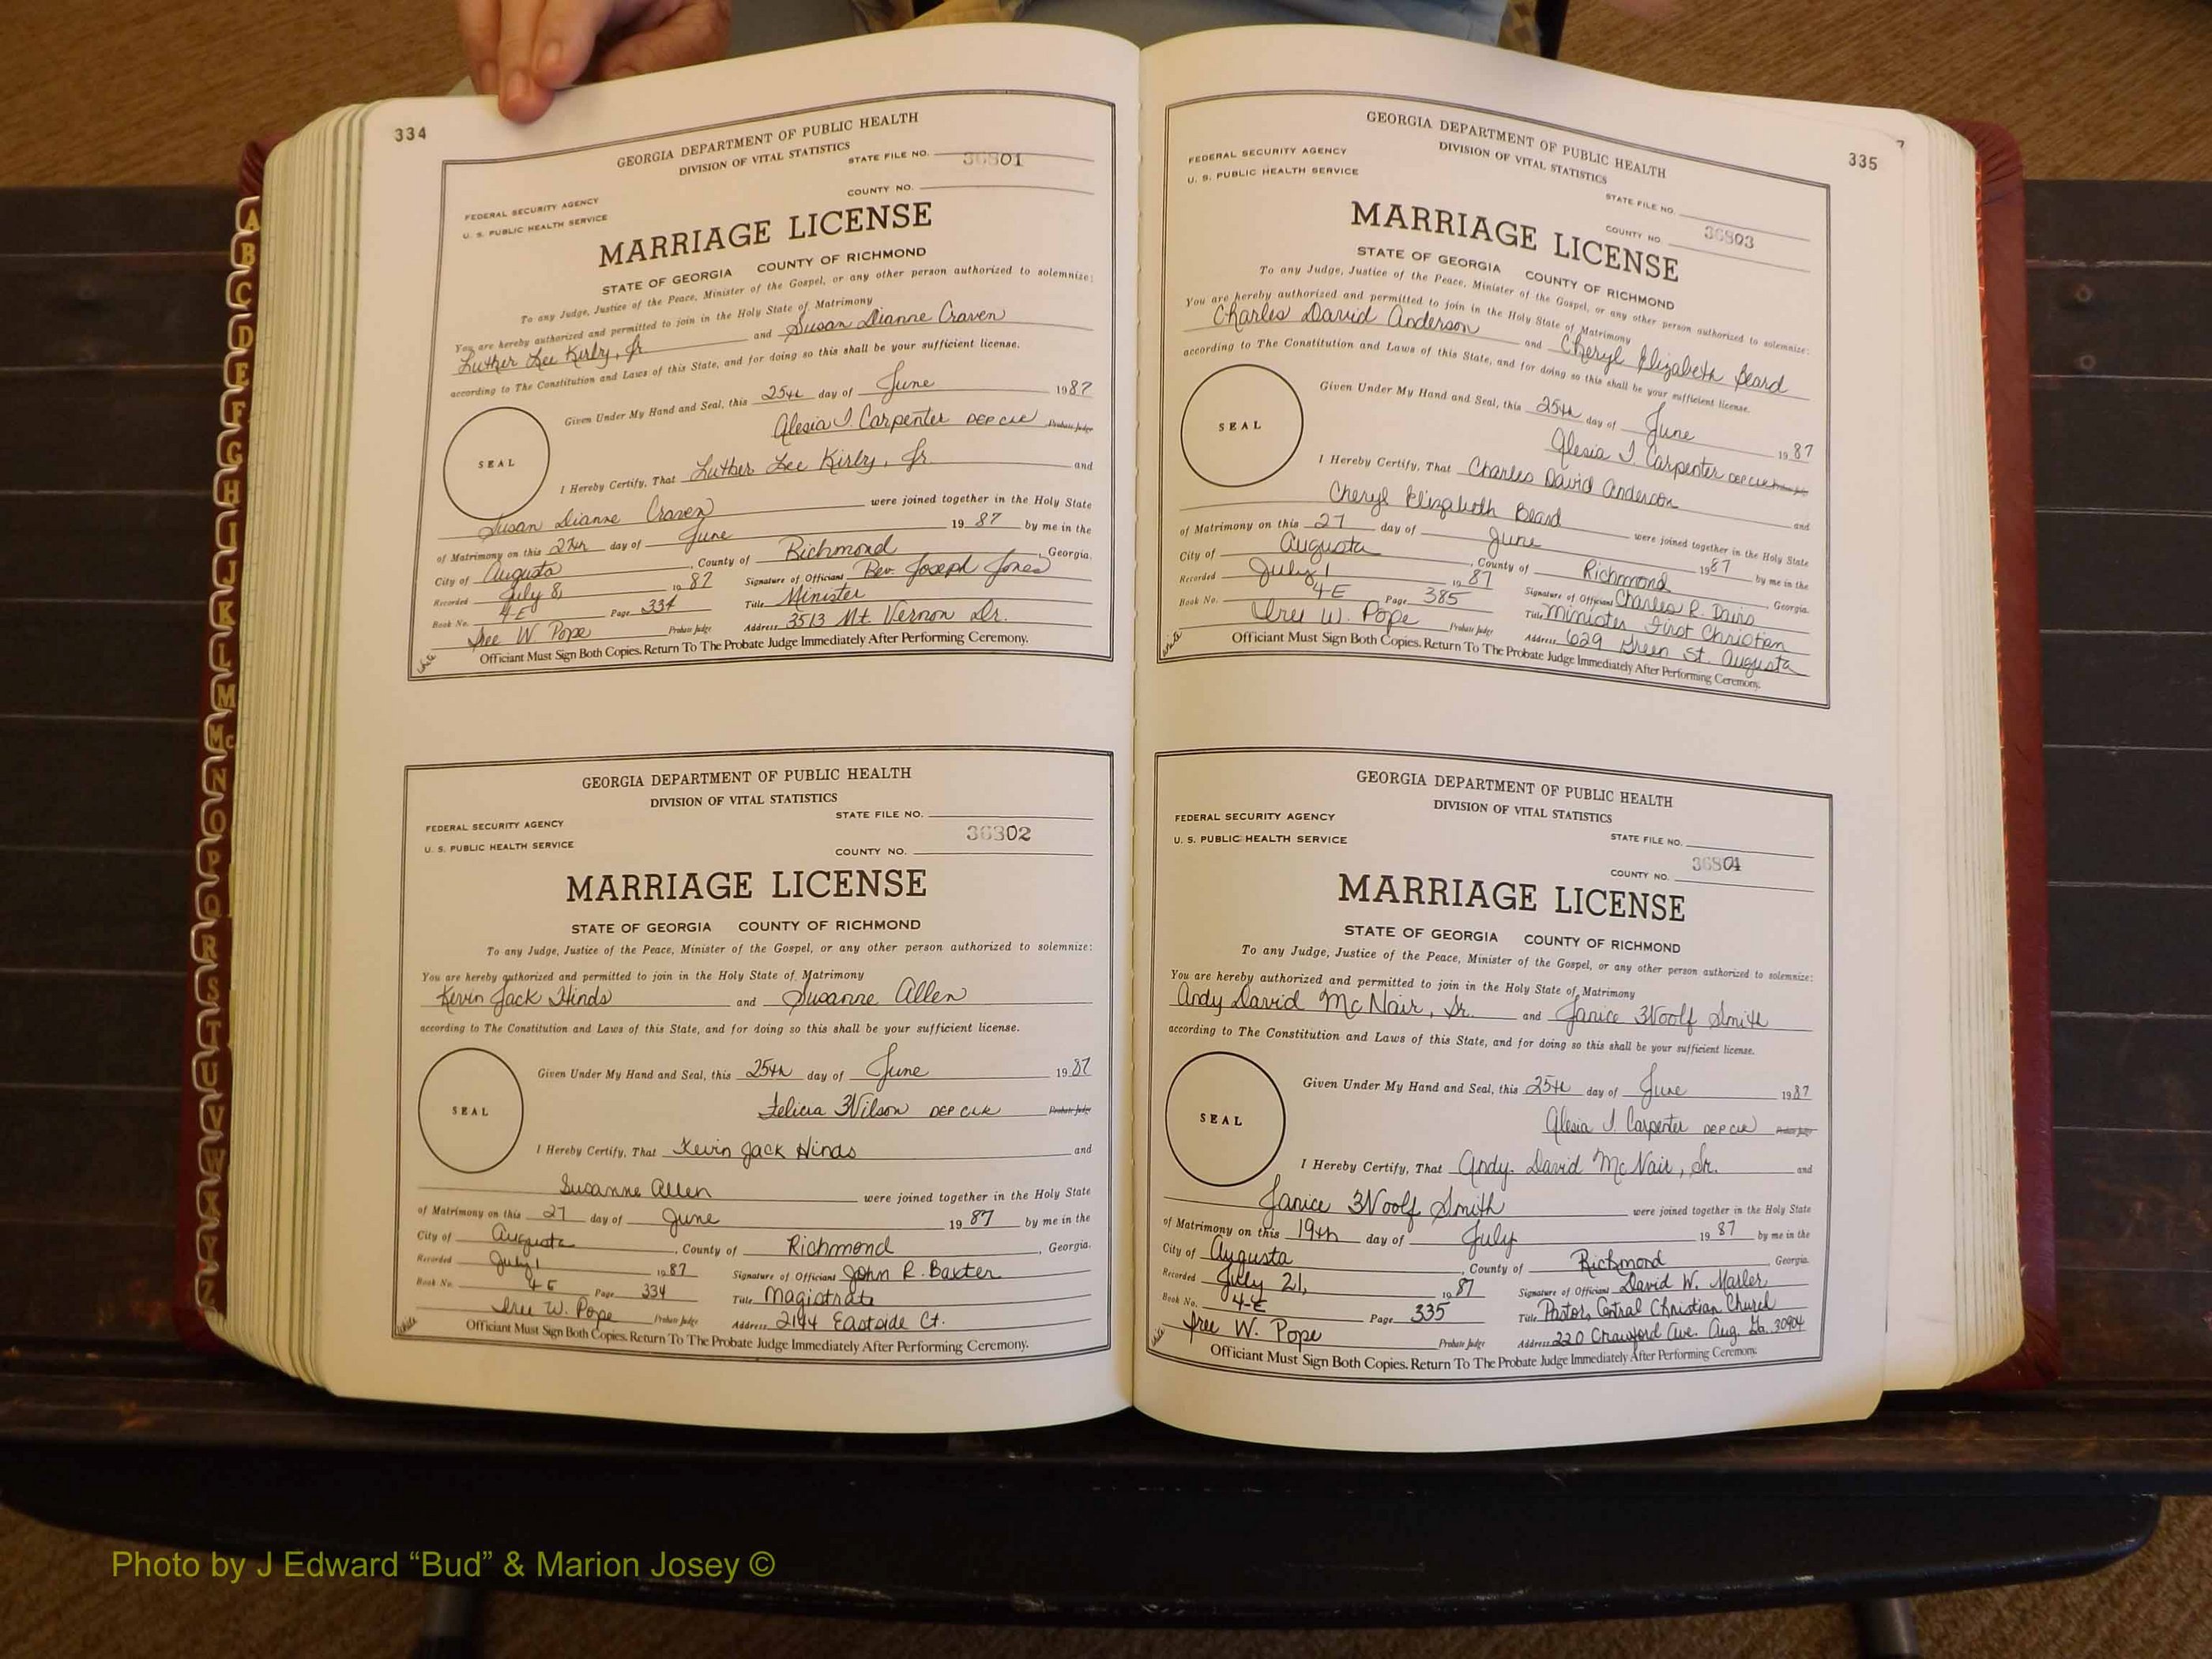 334
GEORGIA DEPARTMENT OF PUBLIC HEALTH
DIVISION OF VITAL STATISTICS
STATE FILE NO. 36801
COUNTY NO.
FEDERAL SECURITY AGENCY
U. S. PUBLIC HEALTH SERVICE
MARRIAGE LICENSE
STATE OF GEORGIA COUNTY OF RICHMOND
To any Judge, Justice of the Peace, Minister of the Gospel, or any other person authorized to solemnize:
You are hereby authorized and permitted to join in the Holy State of Matrimony
Luther Lee Kirby, Jr and Susan Dianne Craven
according to The Constitution and Laws of this State, and for doing so this shall be your sufficient license.
Given Under My Hand and Seal, this 25th day of June 1987
Alesia J. Carpenter DEP CLK Probate Judge
SEAL
I Hereby Certify, That Luther Lee Kirby, Jr. and
Susan Dianne Craven were joined together in the Holy State
of Matrimony on this 27th day of June 1987 by me in the
City of Augusta, County of Richmond, Georgia.
Recorded July 8, 1987 Signature of Officiant Rev. Joseph Jones
Book No. 4-E Page 334 Title Minister
Iree W. Pope Probate Judge Address 3513 Mt. Vernon Dr.
Officiant Must Sign Both Copies. Return To The Probate Judge Immediately After Performing Ceremony.
White
GEORGIA DEPARTMENT OF PUBLIC HEALTH
DIVISION OF VITAL STATISTICS
STATE FILE NO.
FEDERAL SECURITY AGENCY
36802
U. S. PUBLIC HEALTH SERVICE
COUNTY NO.
MARRIAGE LICENSE
STATE OF GEORGIA COUNTY OF RICHMOND
To any Judge, Justice of the Peace, Minister of the Gospel, or any other person authorized to solemnize:
You are hereby authorized and permitted to join in the Holy State of Matrimony
Kevin Jack Hinds and Susanne Allen
according to The Constitution and Laws of this State, and for doing so this shall be your sufficient license.
Given Under My Hand and Seal, this 25th day of June 1987
Felicia Wilson DEP CLK Probate Judge
SEAL
I Hereby Certify, That Kevin Jack Hinds and
Susanne Allen were joined together in the Holy State
of Matrimony on this 27 day of June 1987 by me in the
City of Augusta, County of Richmond, Georgia.
Recorded July 1 1987 Signature of Officiant John R. Baxter
Book No. 4 E Page 334 Title Magistrate
Iree W. Pope Probate Judge Address 2144 Eastside Ct.
Officiant Must Sign Both Copies. Return To The Probate Judge Immediately After Performing Ceremony.
White
335
GEORGIA DEPARTMENT OF PUBLIC HEALTH
DIVISION OF VITAL STATISTICS
FEDERAL SECURITY AGENCY
U. S. PUBLIC HEALTH SERVICE
STATE FILE NO.
COUNTY NO. 36803
MARRIAGE LICENSE
STATE OF GEORGIA COUNTY OF RICHMOND
To any Judge, Justice of the Peace, Minister of the Gospel, or any other person authorized to solemnize:
You are hereby authorized and permitted to join in the Holy State of Matrimony
Charles David Anderson and Cheryl Elizabeth Beard
according to The Constitution and Laws of this State, and for doing so this shall be your sufficient license.
Given Under My Hand and Seal, this 25th day of June 1987
Alesia J. Carpenter DEP CLK Probate Judge
SEAL
I Hereby Certify, That Charles David Anderson and
Cheryl Elizabeth Beard were joined together in the Holy State
of Matrimony on this 27 day of June 1987 by me in the
City of Augusta, County of Richmond Georgia.
Recorded July 1 1987 Signature of Officiant Charles R. Davis
Book No. 4-E Page 385 Title Minister First Christian
Iree W. Pope Probate Judge Address 629 Green St. Augusta
Officiant Must Sign Both Copies. Return To The Probate Judge Immediately After Performing Ceremony.
White
GEORGIA DEPARTMENT OF PUBLIC HEALTH
DIVISION OF VITAL STATISTICS
FEDERAL SECURITY AGENCY
U. S. PUBLIC HEALTH SERVICE
STATE FILE NO.
36804
COUNTY NO.
MARRIAGE LICENSE
STATE OF GEORGIA COUNTY OF RICHMOND
To any Judge, Justice of the Peace, Minister of the Gospel, or any other person authorized to solemnize:
You are hereby authorized and permitted to join in the Holy State of Matrimony
Andy David McNair, Sr. and Janice Woolf Smith
according to The Constitution and Laws of this State, and for doing so this shall be your sufficient license.
Given Under My Hand and Seal, this 25th day of June 1987
Alesia J. Carpenter DEP CLK Probate Judge
SEAL
I Hereby Certify, That Andy David McNair, Sr. and
Janice Woolf Smith were joined together in the Holy State
of Matrimony on this 19th day of July 1987 by me in the
City of Augusta, County of Richmond Georgia.
Recorded July 21, 1987 Signature of Officiant David W. Marler
Book No. 4-E Page 335 Title Pastor, Central Christian Church
Iree W. Pope Probate Judge Address 220 Crawford Ave. Aug. Ga. 30904
Officiant Must Sign Both Copies. Return To The Probate Judge Immediately After Performing Ceremony.
White
A
B
C
D
E
F
G
H
I
J
K
L
M
Mc
N
O
P
Q
R
S
T
U
V
W
X
Y
Z
Photo by J Edward “Bud” & Marion Josey ©